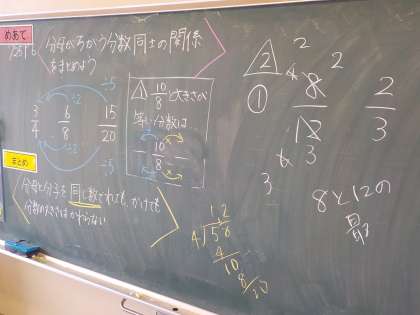 めあて
分母がちがう分数同士の関係
をまとめよう
÷5
÷2
3/4 6/8 15/20
÷2
÷5
△1 10/8と大きさが
等しい分数は
10/8
10/8
まとめ
分母と分子を同じ数でわっても、かけても
分数の大きさはかわらない
4
10
8
△2
2
4 2
① 8/12 2/3
6 3
3
8と12の
最